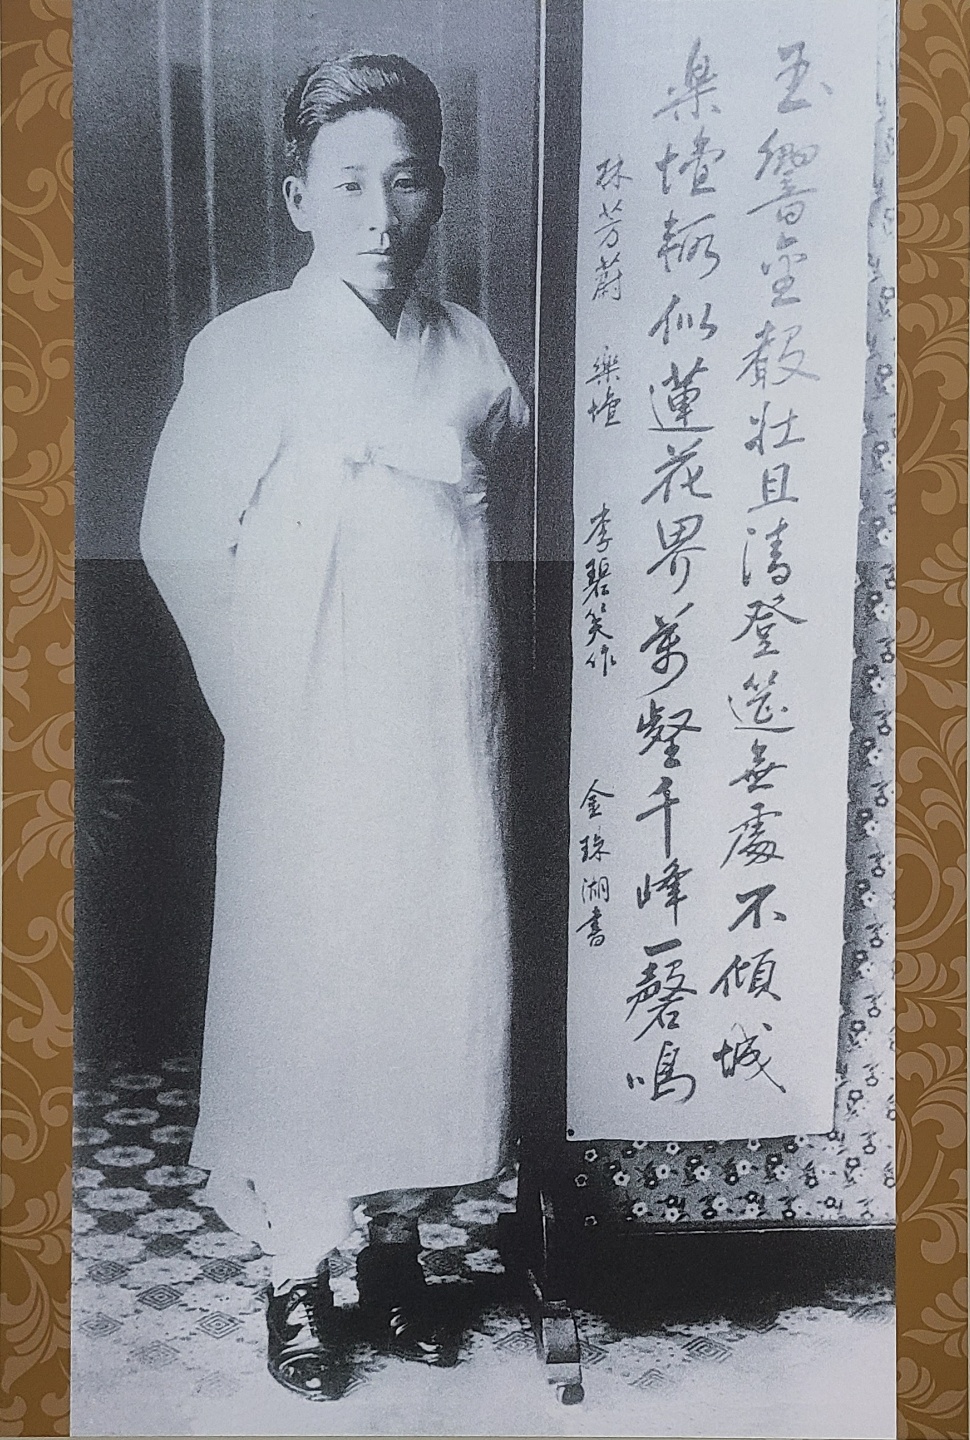 玉響金聲壯且清登筵無處不傾城
楽壇輕似蓮花界萬壑千峰一磬鳴
林芳蔚 樂壇 李碧笑作 金珠湖書